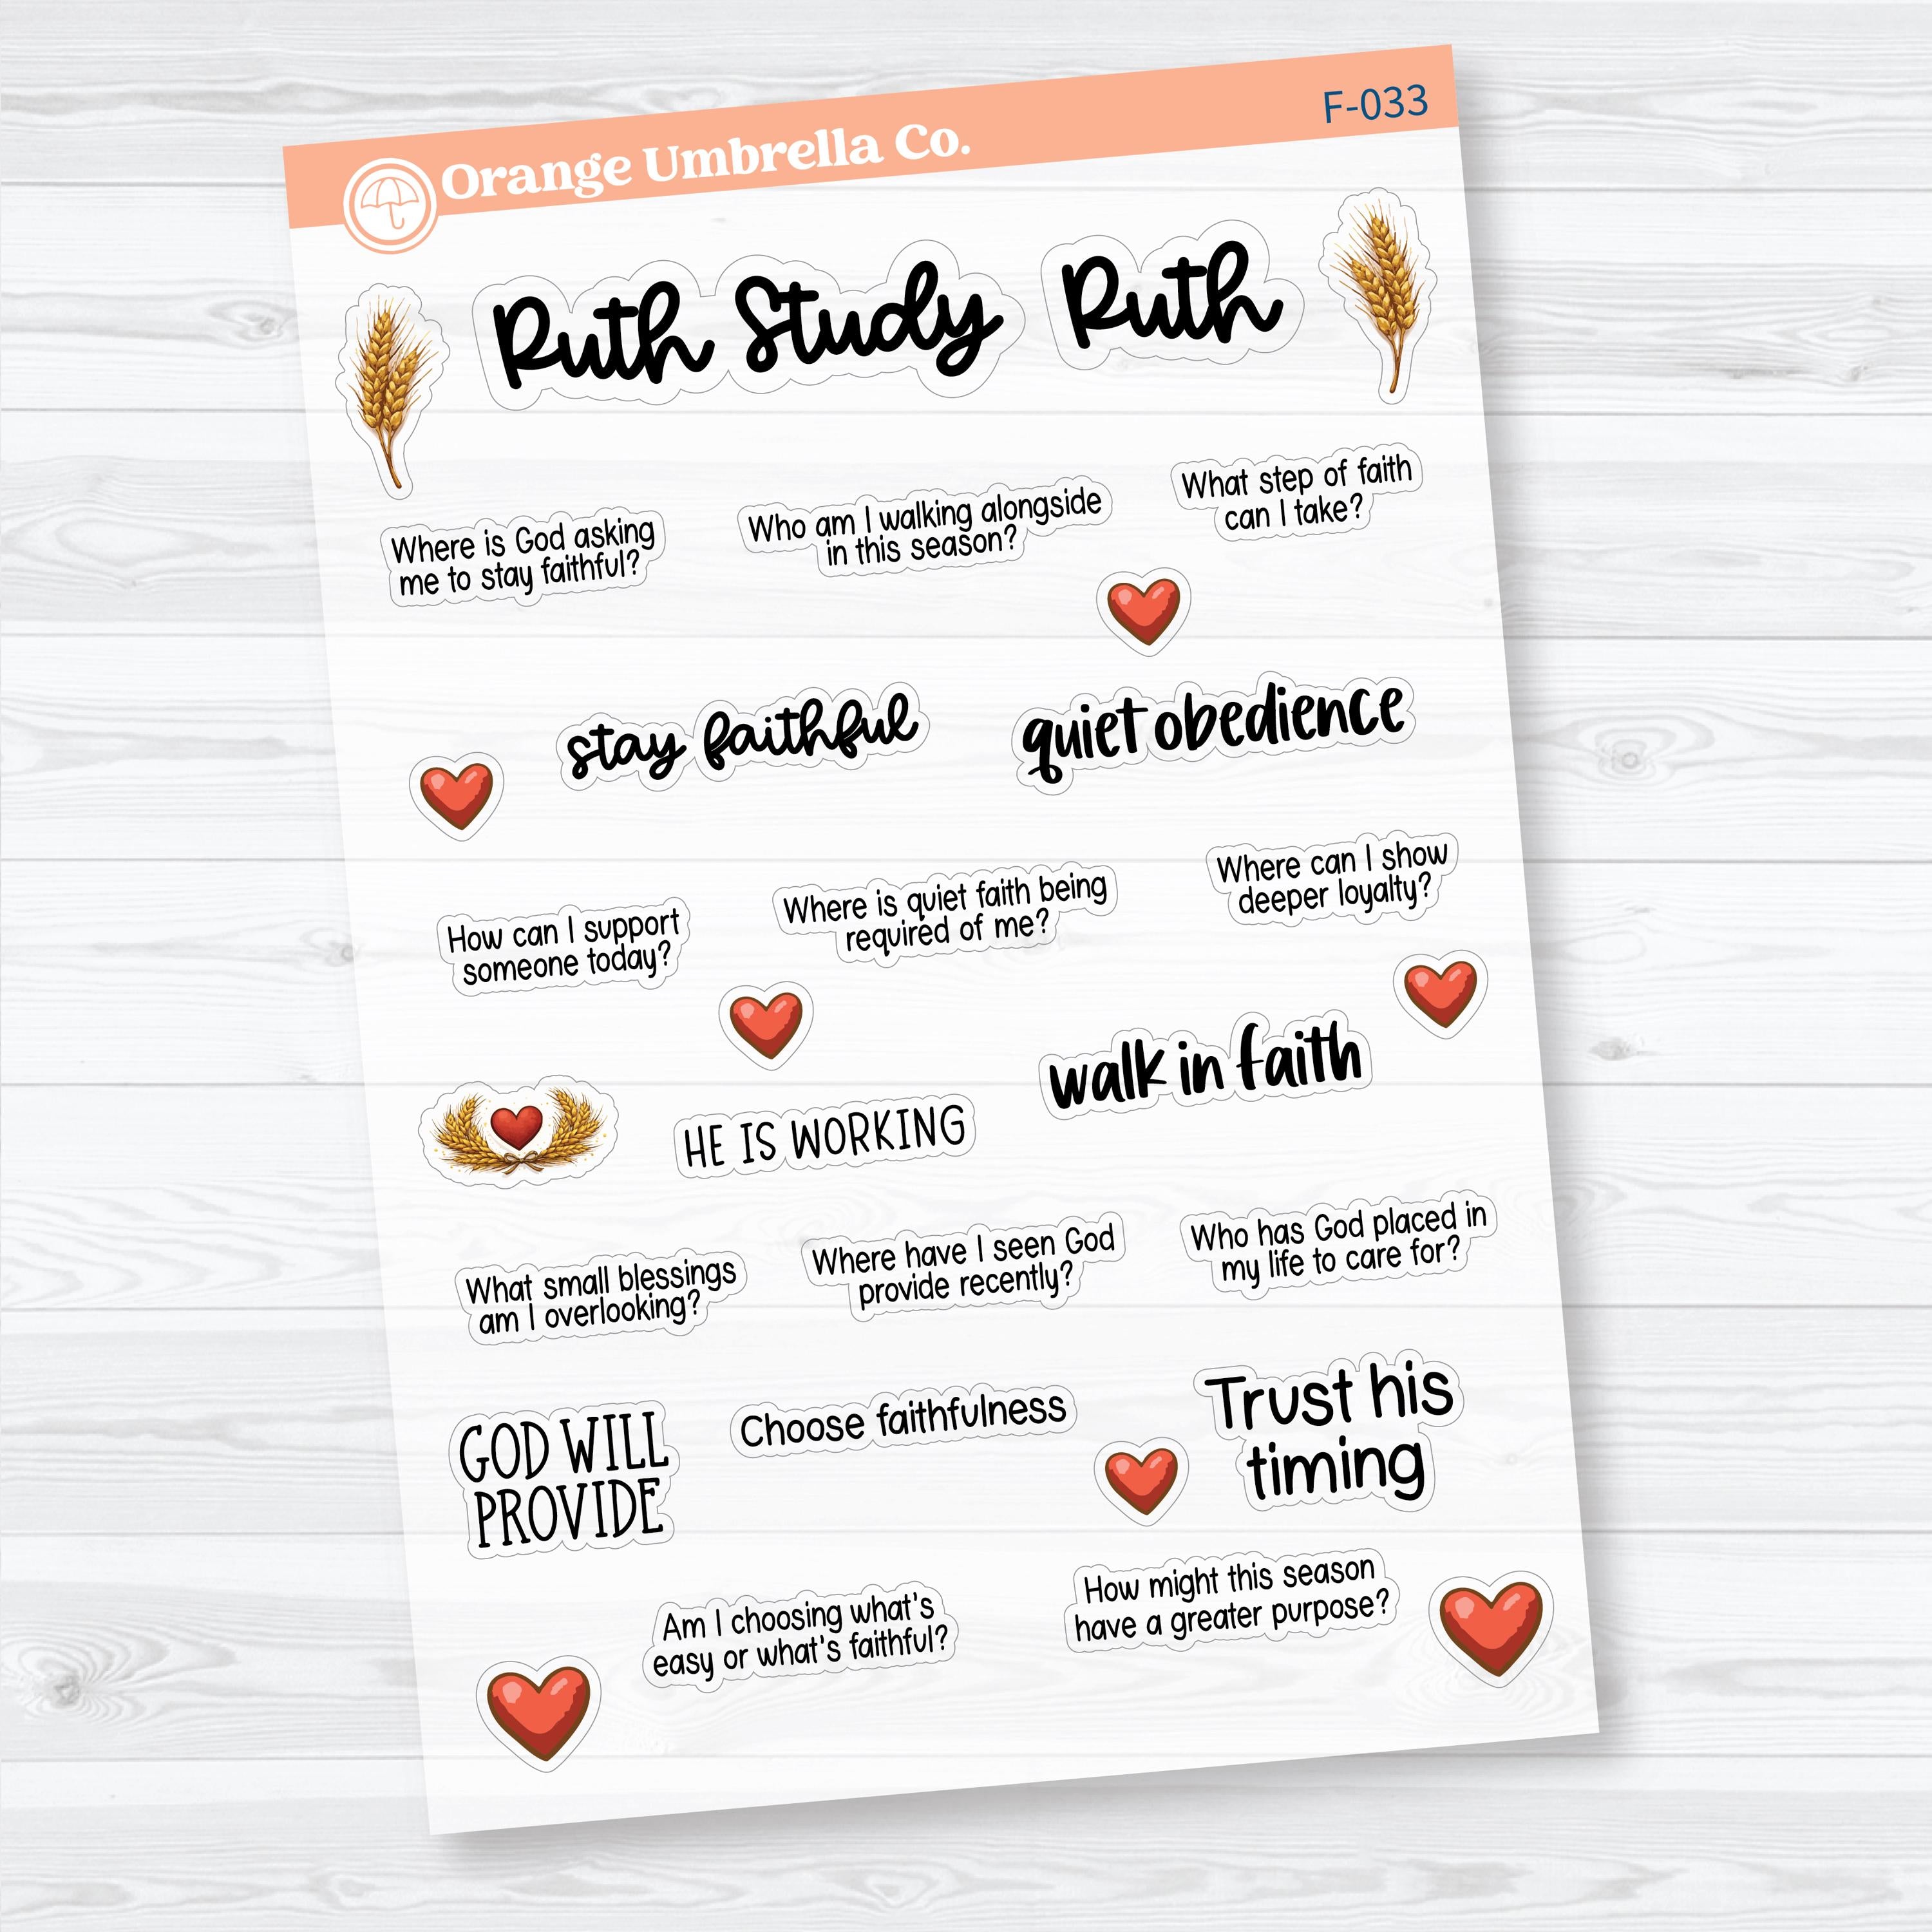 Orange Umbrella Co.
F-033
Ruth Study
Ruth
Where is God asking
me to stay faithful?
Who am I walking alongside
in this season?
What step of faith
can I take?
stay faithful
quiet obedience
How can I support
someone today?
Where is quiet faith being
required of me?
Where can I show
deeper loyalty?
HE IS WORKING
walk in faith
What small blessings
am I overlooking?
Where have I seen God
provide recently?
Who has God placed in
my life to care for?
GOD WILL
PROVIDE
Choose faithfulness
Trust his
timing
Am I choosing what's
easy or what's faithful?
How might this season
have a greater purpose?